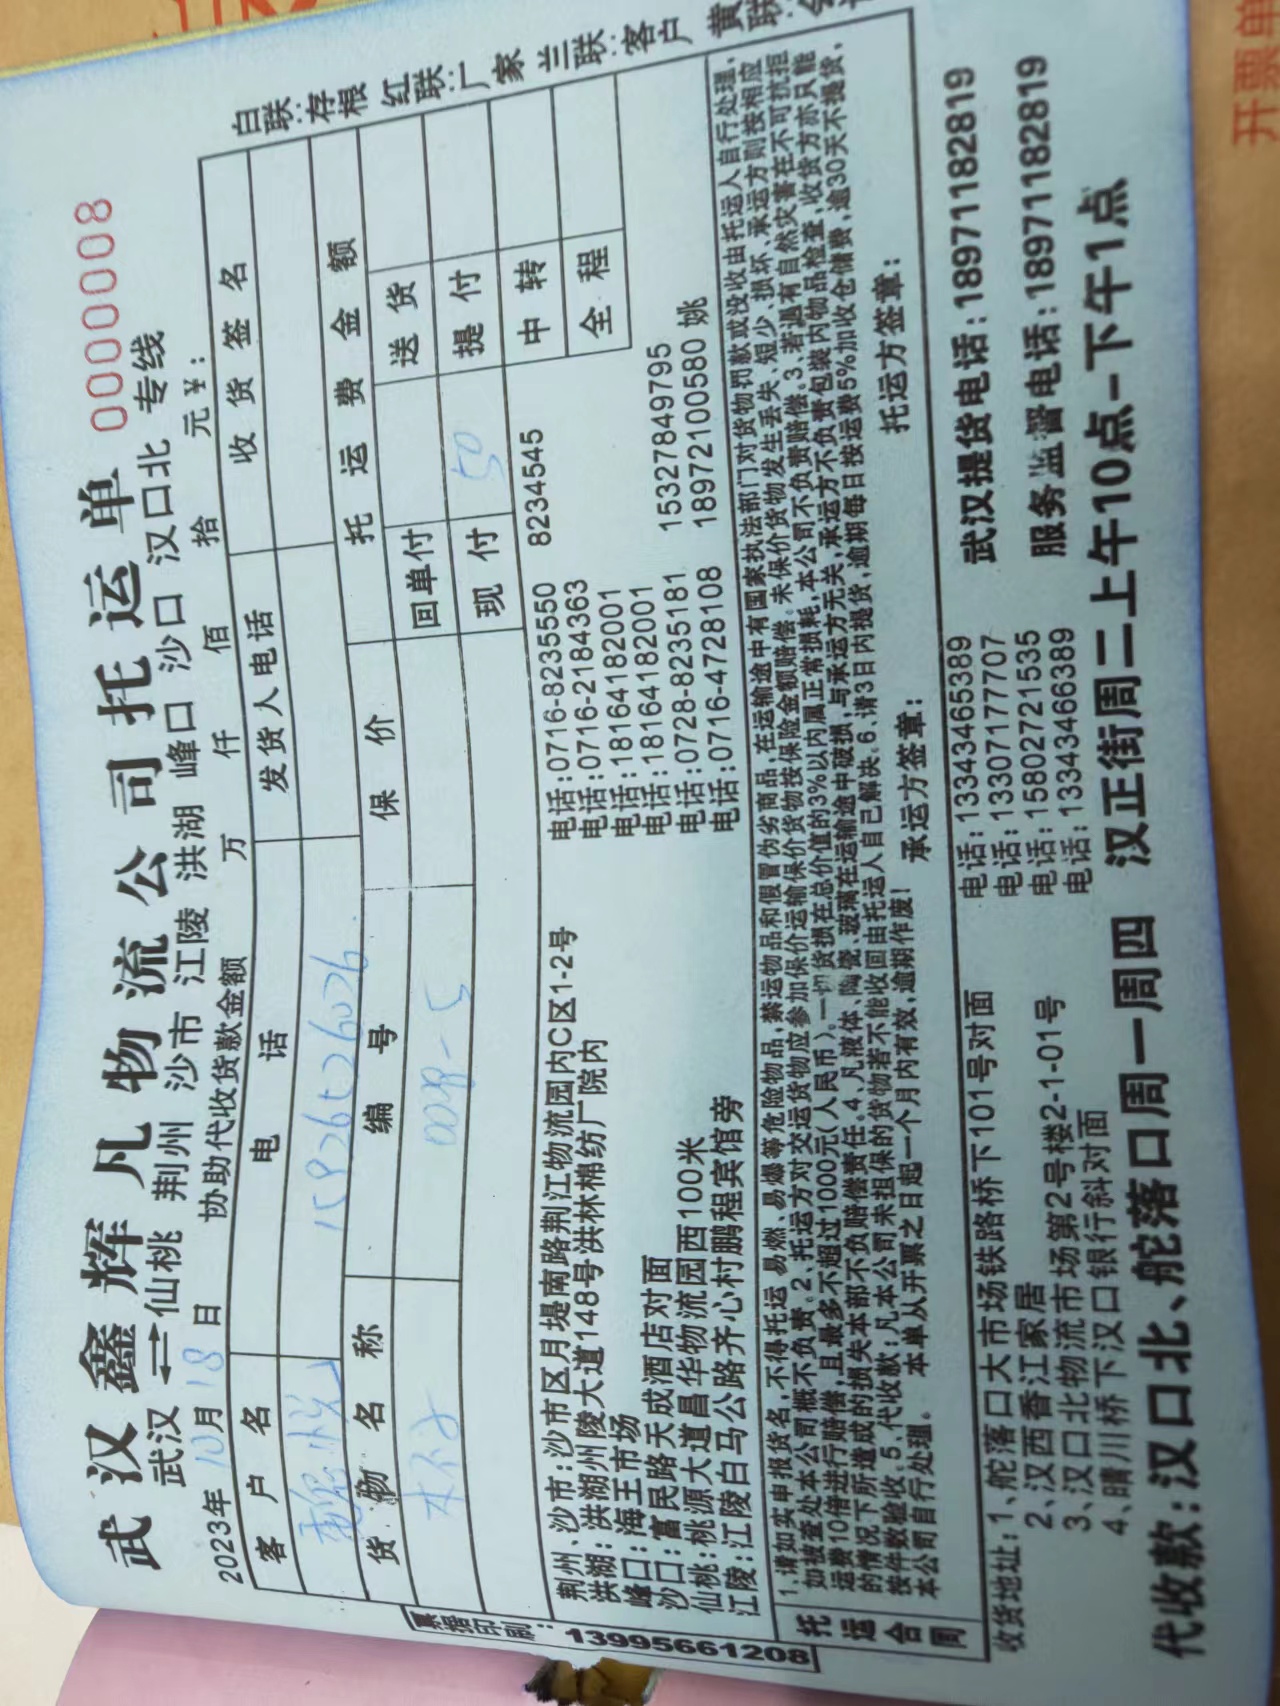 武汉鑫辉凡物流公司托运单 0000008
武汉⇌仙桃 荆州 沙市 江陵 洪湖 峰口 沙口 汉口北 专线
2023年10月18日 协助代收货款金额 万 仟 佰 拾 元¥:
客户名 电话 发货人电话 收货签名
货物名称 编号 保价 托运费金额
009-5 回单付 送货
现付 50 提付
中转
全程
荆州、沙市:沙市区月堤南路荆江物流园内C区1-2号 电话:0716-8235550 8234545
洪湖:洪湖州陵大道148号洪林棉纺厂院内 电话:0716-2184363
峰口:海王市场 电话:18164182001
沙口:富民路天成酒店对面 电话:18164182001
仙桃:桃源大道昌华物流园西100米 电话:0728-8235181 15327849795
江陵:江陵白马公路齐心村鹏程宾馆旁 电话:0716-4728108 18972100580 姚
托运合同
1、请如实申报货名,不得托运易燃、易爆等危险物品,禁运物品和假冒伪劣商品,在运输途中有国家执法部门对货物罚款或没收由托运人自行处理,
如被查处本公司概不负责。2、托运方对交运货物应参加保价运输保价货物按保险金额赔偿。未保价货物发生丢失、短少、损坏、承运方则按相应
运费10倍进行赔偿,且最多不超过1000元(人民币)。一切货损在总价值的3%以内属正常损耗,本公司不负责赔偿。3、若遇有自然灾害在不可抗拒
的情况下所造成的损失本部不负赔偿责任。4、凡液体、陶瓷、玻璃在运输途中破损,与承运方无关,承运方不负责包装内物品检查,收货方亦只能
按件数验收。5、代收款:凡本公司未担保的货物若不能收回由托运人自己解决。6、请3日内提货,逾期每日按运费5%加收仓储费,逾30天不提货,
本公司自行处理。 本单从开票之日起一个月内有效,逾期作废!
承运方签章: 托运方签章:
收货地址:1、舵落口大市场铁路桥下101号对面 电话:13343465389 武汉提货电话:18971182819
2、汉西香江家居 电话:13307177707
3、汉口北物流市场第2号楼2-1-01号 电话:15802721535 服务监督电话:18971182819
4、晴川桥下汉口银行斜对面 电话:13343466389
代收款:汉口北、舵落口周一周四 汉正街周二上午10点-下午1点
白联:存根 红联:厂家 兰联:客户 黄联:
票据印刷:13995661208
开票单